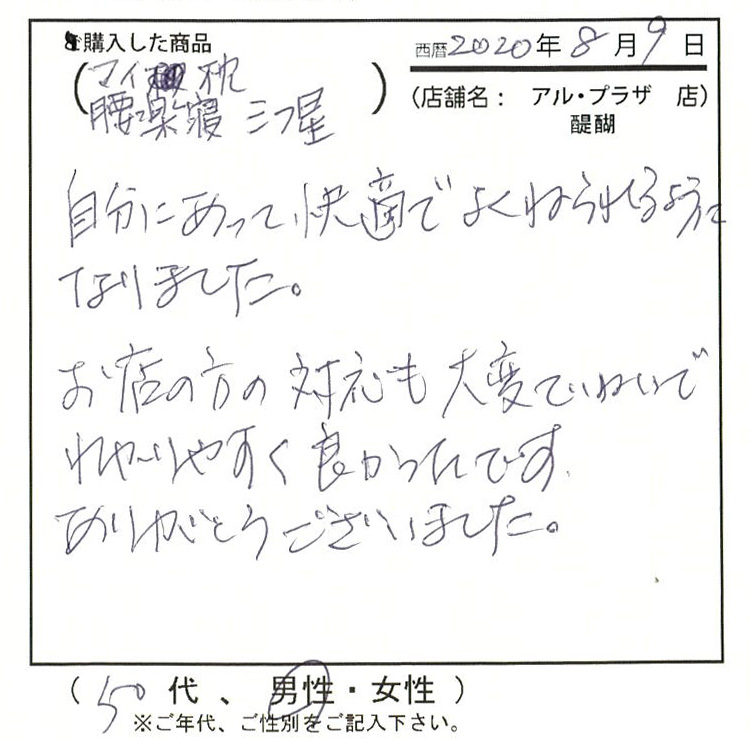 ご購入した商品
(マイ枕
腰楽寝 三つ星)
西暦2020年8月9日
(店舗名： アル・プラザ 店)
醍醐
自分にあって、快適でよくねられるように
なりました。
お店の方の対応も大変ていねいで
わかりやすく良かったです。
ありがとうございました。
(50代、男性・女性)
※ご年代、ご性別をご記入下さい。